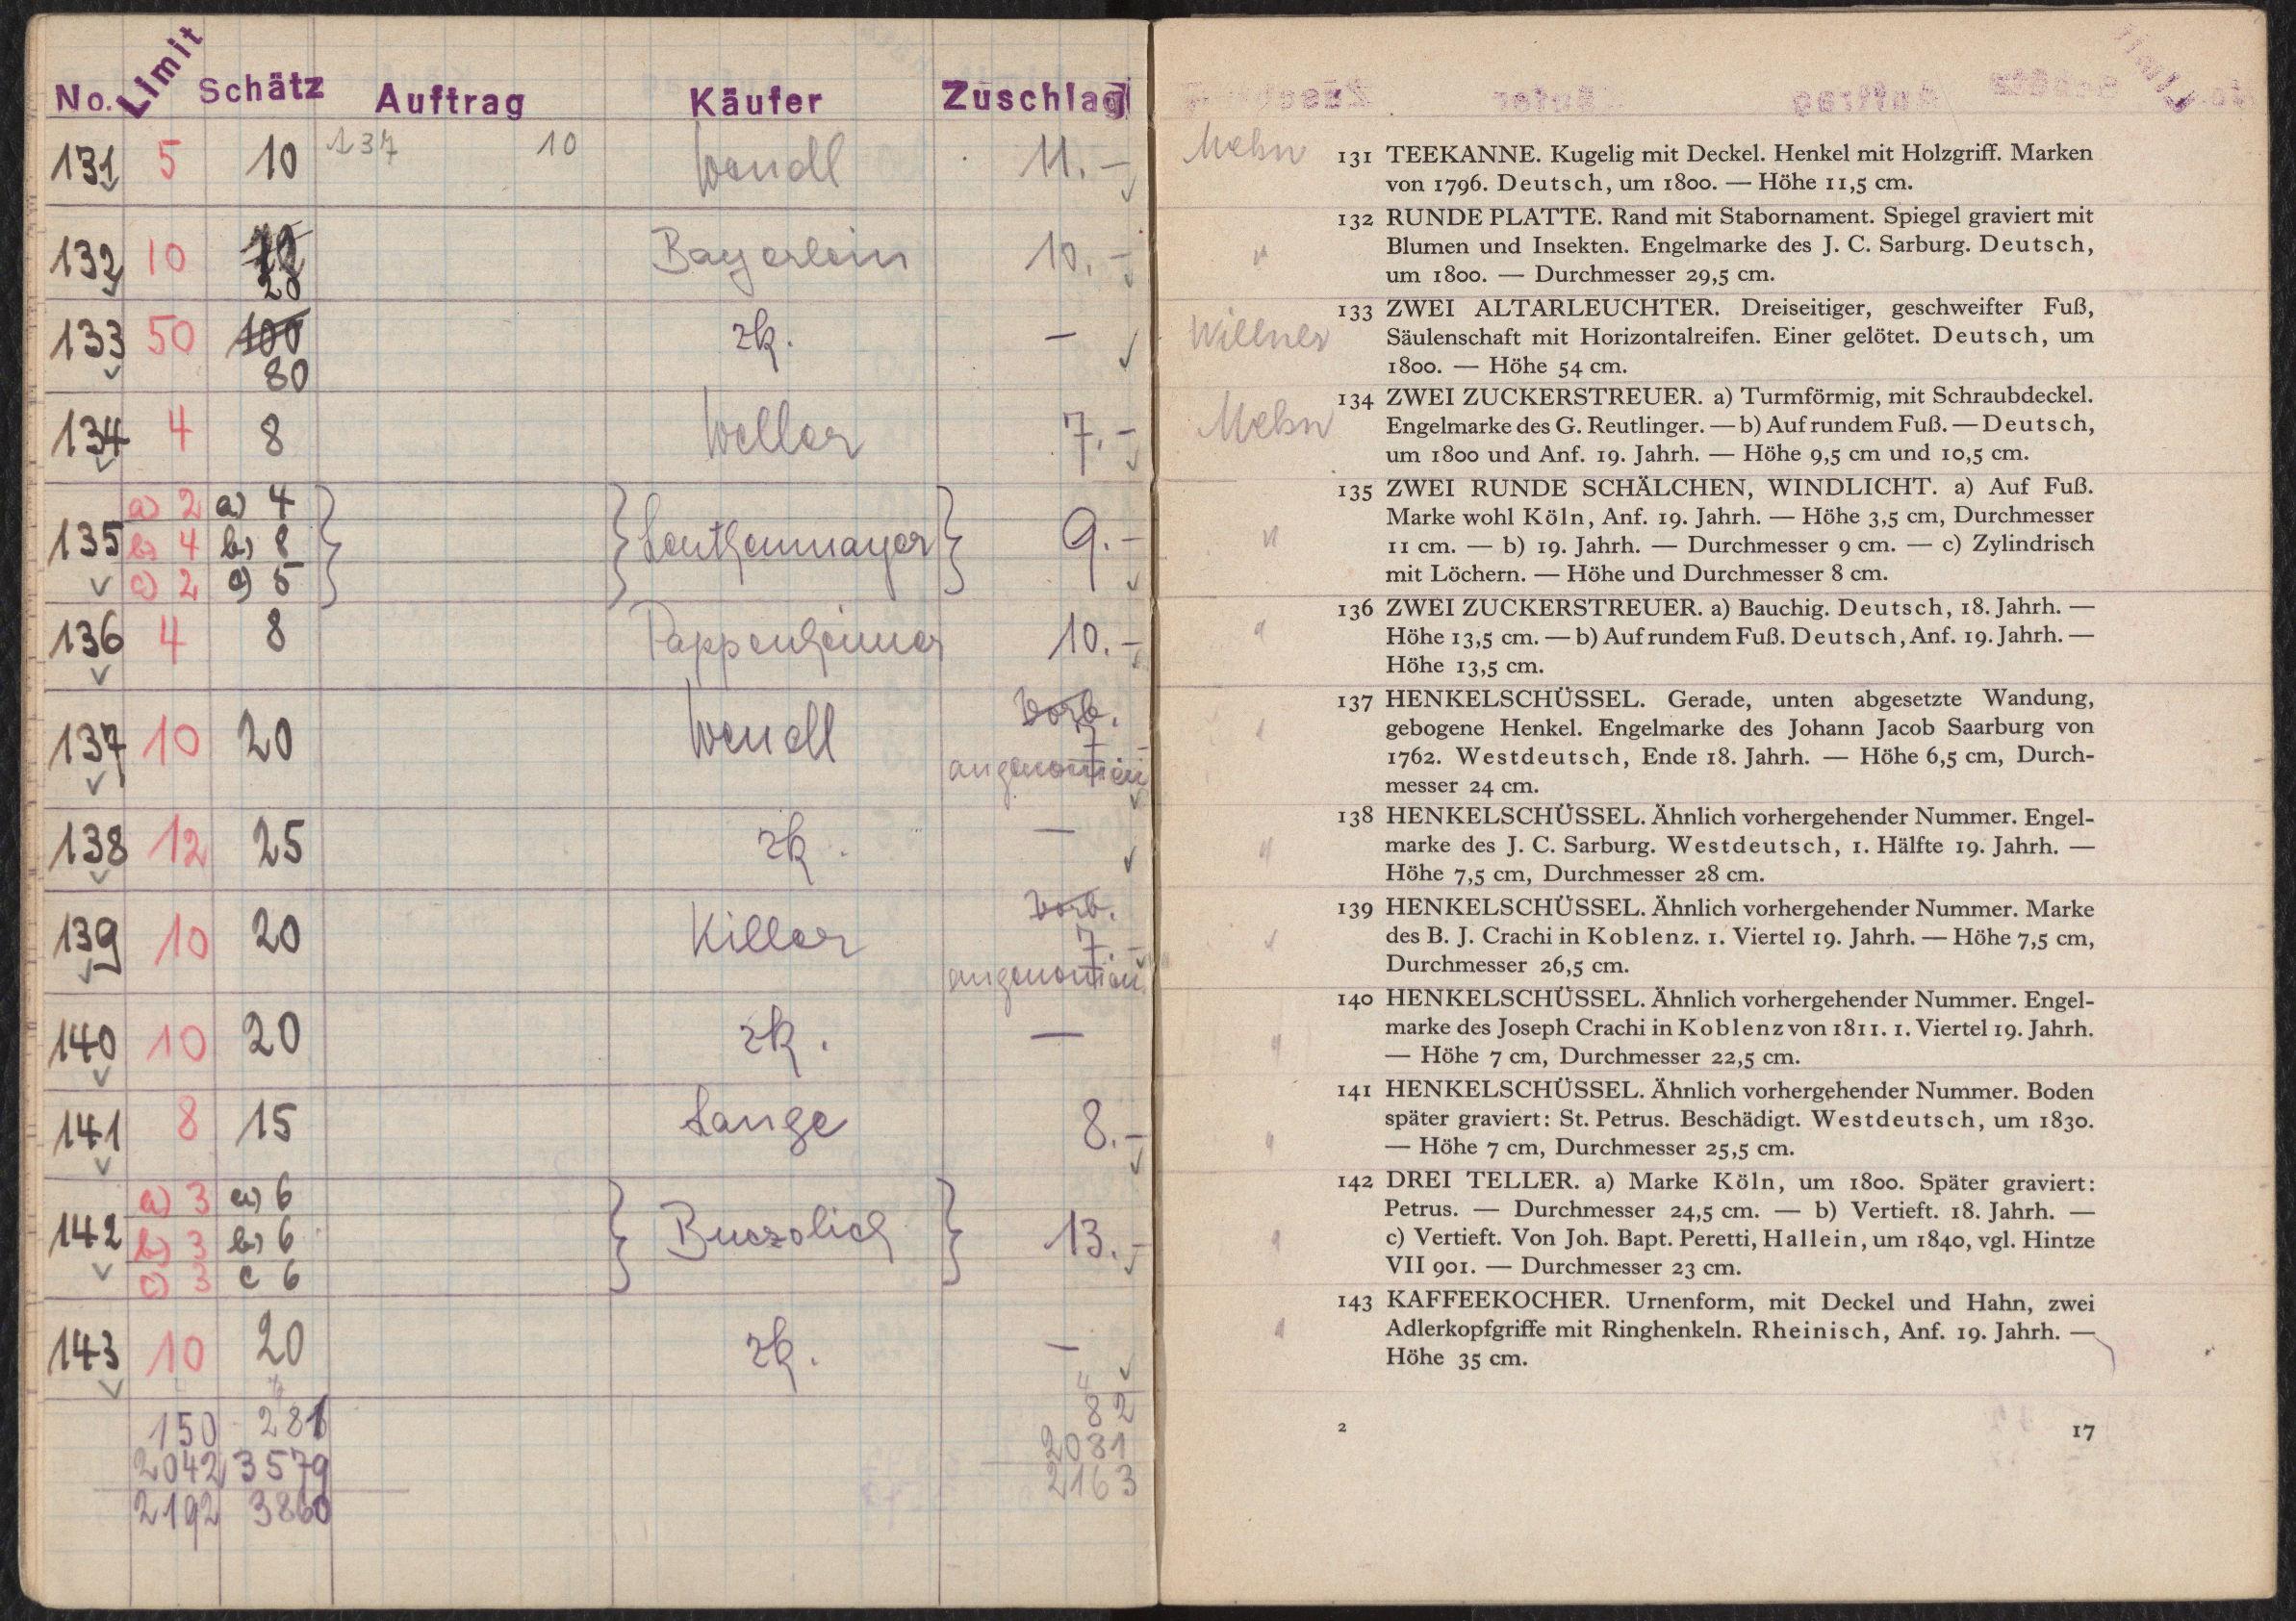 No. Limit Schätz Auftrag Käufer Zuschlag
131 5 10 137 10 Wendl 11.-
132 10 20 Bayerlein 10.-
133 50 100 80 zk. -
134 4 8 Weller 7.-
135 a) 2 a) 4
b) 4 b) 8 9.-
c) 2 c) 5
136 4 8 Pappenheimer 10.-
137 10 20 Wendl Vorb. 7.- angenommen
138 12 25 zk. -
139 10 20 Killer Vorb. 7.- angenommen
140 10 20 zk. -
141 8 15 Lange 8.-
142 a) 3 a) 6
b) 3 b) 6 Buczolich 13.-
c) 3 c 6
143 10 20 zk. -
150 281 82
2042 3579 2081
2192 3860 2163
Mehn
131 TEEKANNE. Kugelig mit Deckel. Henkel mit Holzgriff. Marken
von 1796. Deutsch, um 1800. — Höhe 11,5 cm.
132 RUNDE PLATTE. Rand mit Stabornament. Spiegel graviert mit
" Blumen und Insekten. Engelmarke des J. C. Sarburg. Deutsch,
um 1800. — Durchmesser 29,5 cm.
133 ZWEI ALTARLEUCHTER. Dreiseitiger, geschweifter Fuß,
Willner Säulenschaft mit Horizontalreifen. Einer gelötet. Deutsch, um
1800. — Höhe 54 cm.
134 ZWEI ZUCKERSTREUER. a) Turmförmig, mit Schraubdeckel.
Mehn Engelmarke des G. Reutlinger. — b) Auf rundem Fuß. — Deutsch,
um 1800 und Anf. 19. Jahrh. — Höhe 9,5 cm und 10,5 cm.
135 ZWEI RUNDE SCHÄLCHEN, WINDLICHT. a) Auf Fuß.
Marke wohl Köln, Anf. 19. Jahrh. — Höhe 3,5 cm, Durchmesser
" 11 cm. — b) 19. Jahrh. — Durchmesser 9 cm. — c) Zylindrisch
mit Löchern. — Höhe und Durchmesser 8 cm.
136 ZWEI ZUCKERSTREUER. a) Bauchig. Deutsch, 18. Jahrh. —
" Höhe 13,5 cm. — b) Auf rundem Fuß. Deutsch, Anf. 19. Jahrh. —
Höhe 13,5 cm.
137 HENKELSCHÜSSEL. Gerade, unten abgesetzte Wandung,
" gebogene Henkel. Engelmarke des Johann Jacob Saarburg von
1762. Westdeutsch, Ende 18. Jahrh. — Höhe 6,5 cm, Durch-
messer 24 cm.
138 HENKELSCHÜSSEL. Ähnlich vorhergehender Nummer. Engel-
" marke des J. C. Sarburg. Westdeutsch, 1. Hälfte 19. Jahrh. —
Höhe 7,5 cm, Durchmesser 28 cm.
139 HENKELSCHÜSSEL. Ähnlich vorhergehender Nummer. Marke
" des B. J. Crachi in Koblenz. 1. Viertel 19. Jahrh. — Höhe 7,5 cm,
Durchmesser 26,5 cm.
140 HENKELSCHÜSSEL. Ähnlich vorhergehender Nummer. Engel-
" marke des Joseph Crachi in Koblenz von 1811. 1. Viertel 19. Jahrh.
— Höhe 7 cm, Durchmesser 22,5 cm.
141 HENKELSCHÜSSEL. Ähnlich vorhergehender Nummer. Boden
später graviert: St. Petrus. Beschädigt. Westdeutsch, um 1830.
" — Höhe 7 cm, Durchmesser 25,5 cm.
142 DREI TELLER. a) Marke Köln, um 1800. Später graviert:
Petrus. — Durchmesser 24,5 cm. — b) Vertieft. 18. Jahrh. —
" c) Vertieft. Von Joh. Bapt. Peretti, Hallein, um 1840, vgl. Hintze
VII 901. — Durchmesser 23 cm.
143 KAFFEEKOCHER. Urnenform, mit Deckel und Hahn, zwei
" Adlerkopfgriffe mit Ringhenkeln. Rheinisch, Anf. 19. Jahrh. —
Höhe 35 cm.
2 17